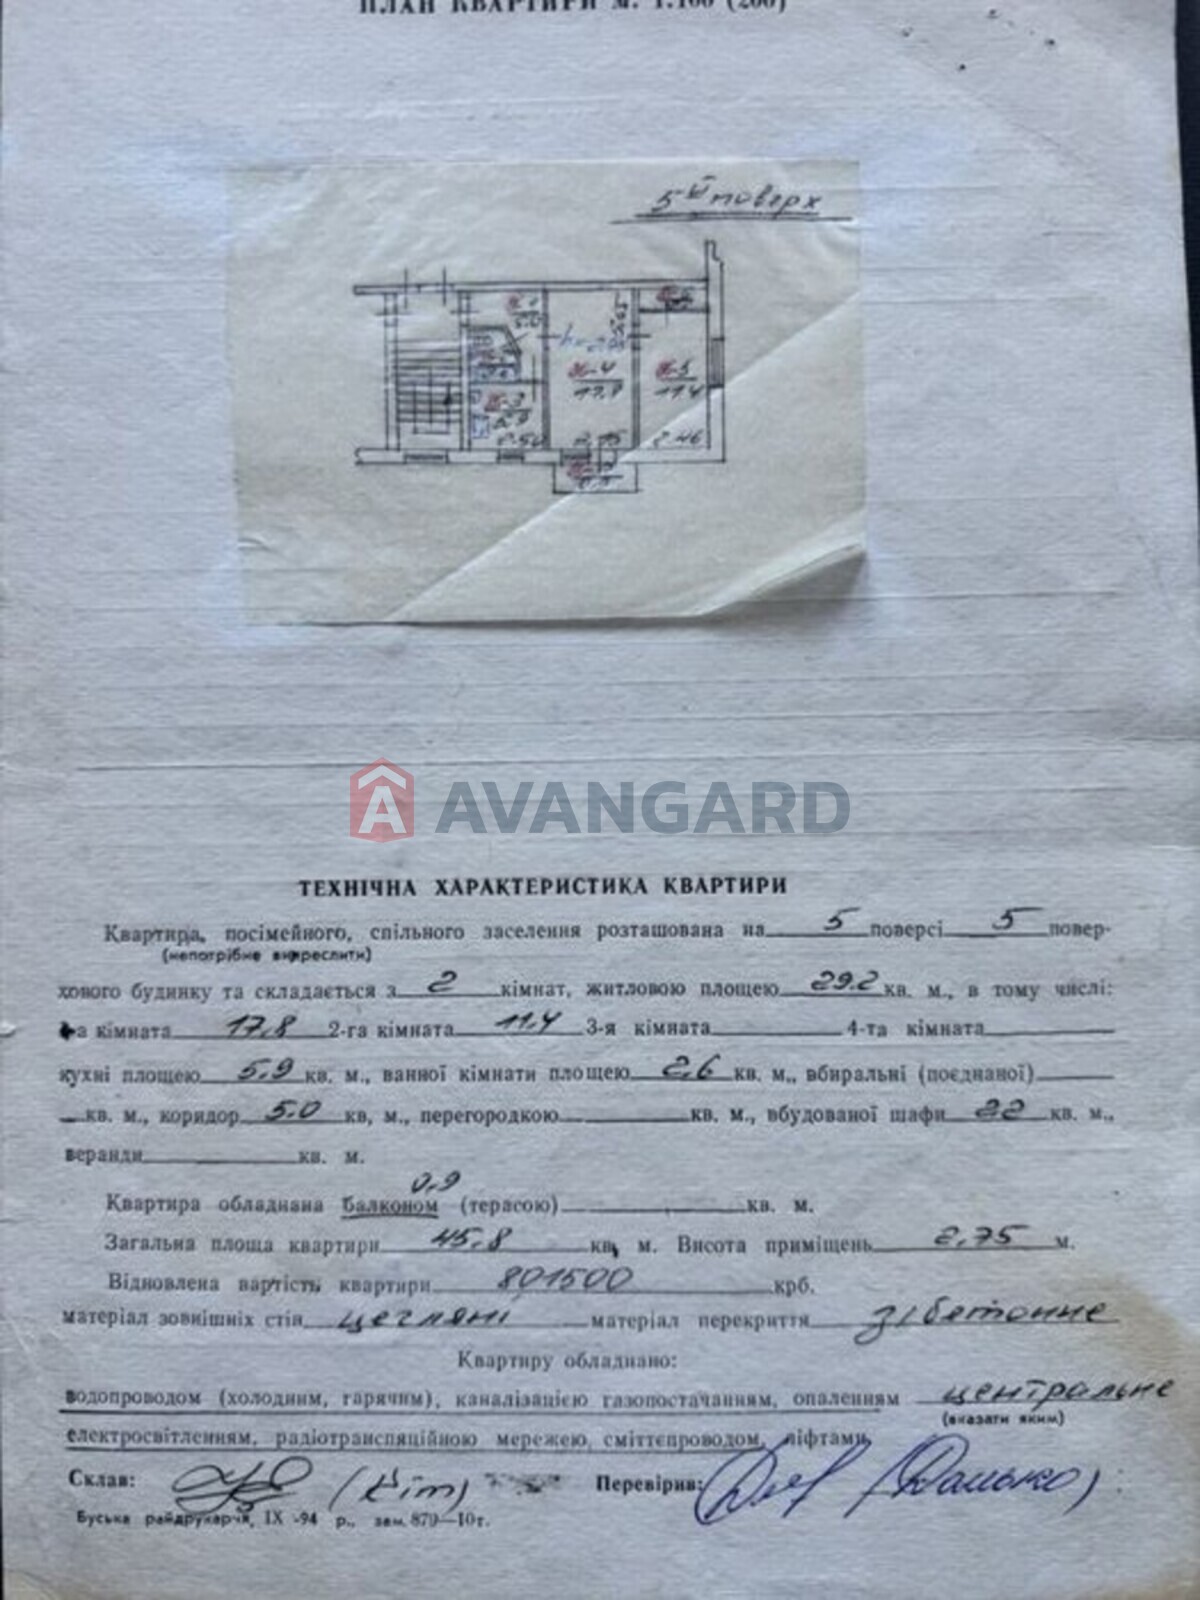 ПЛАН КВАРТИРИ М. 1:100 (200)
5й поверх
5.0
ж-4
17.8
ж-5
11.4
5.9
2.50
2.46
AVANGARD
ТЕХНІЧНА ХАРАКТЕРИСТИКА КВАРТИРИ
Квартира, посімейного, спільного заселення розташована на 5 поверсі 5 повер-
(непотрібне викреслити)
хового будинку та складається з 2 кімнат, житловою площею 29.2 кв. м., в тому числі:
кімната 17,8 2-га кімната 11,4 3-я кімната 4-та кімната
кухні площею 5,9 кв. м., ванної кімнати площею 2,6 кв. м., вбиральні (поєднаної)
кв. м., коридор 5.0 кв, м., перегородкою кв. м., вбудованої шафи 22 кв. м.,
веранди кв. м.
0,9
Квартира обладнана балконом (терасою) кв. м.
Загальна площа квартири 45,8 кв, м. Висота приміщень 2.75 м.
Відновлена вартість квартири 801500 крб.
матеріал зовнішніх стін цегляні матеріал перекриття з/бетонне
Квартиру обладнано:
водопроводом (холодним, гарячим), каналізацією газопостачанням, опаленням центральне
(вказати яким)
електросвітленням, радіотрансляційною мережею, сміттєпроводом, ліфтами
Склав: (Кіт) Перевірив:
Буська райдрукарня, ІХ -94 р., зам. 879—10т.